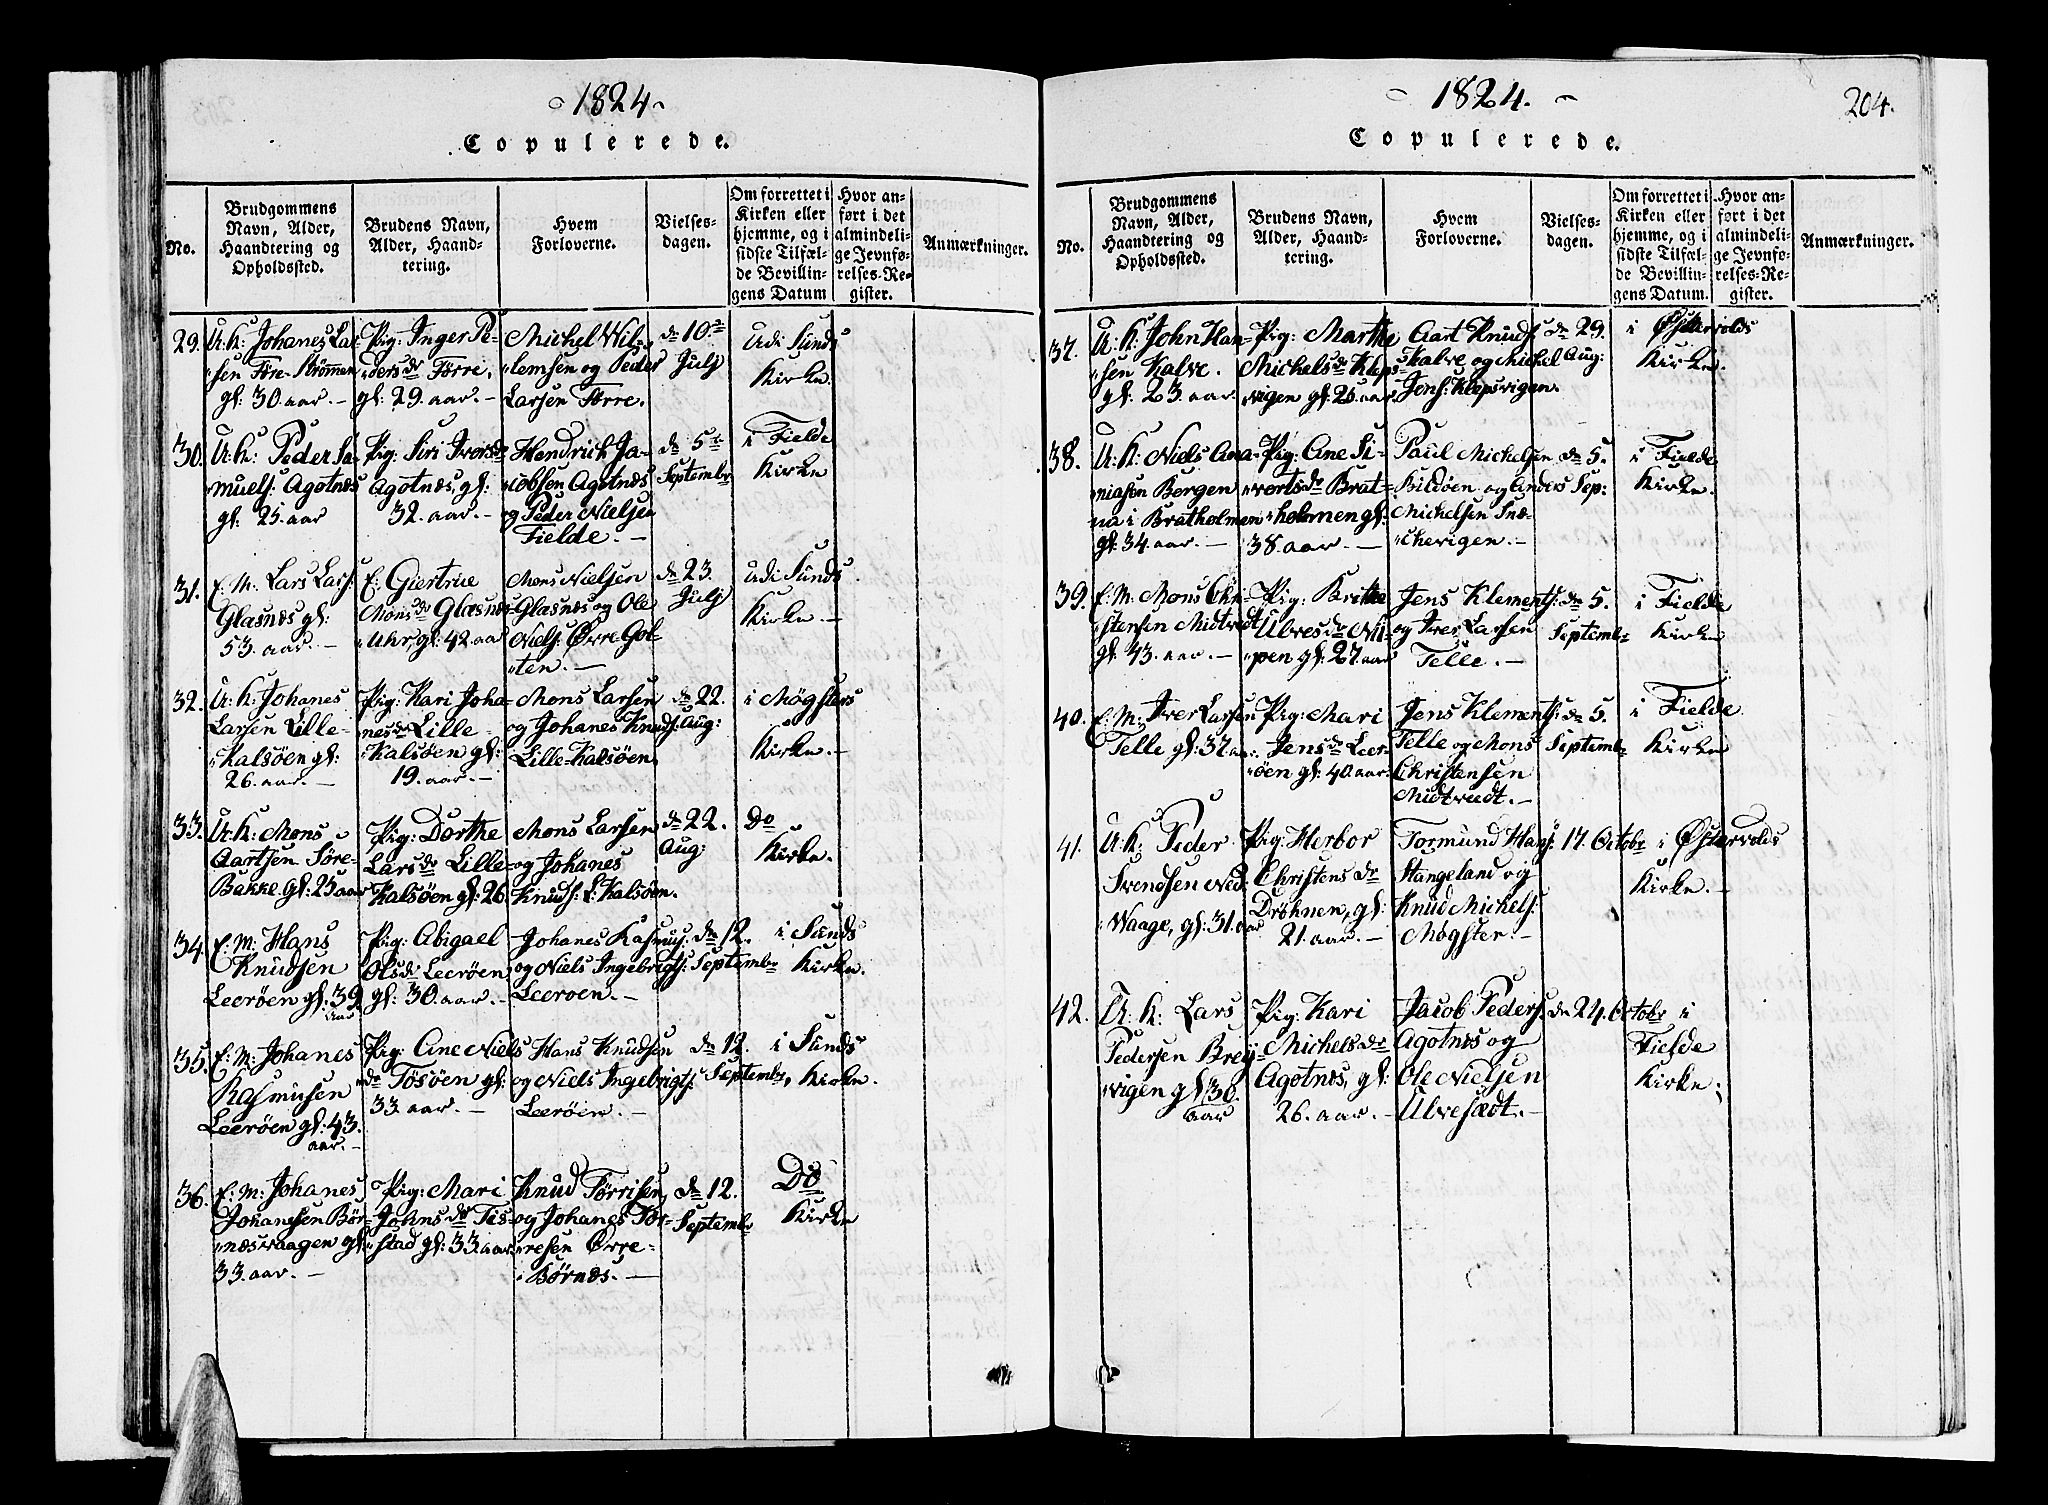 1824
Copulerede.
No.
Brudgommens
Navn, Alder,
Haandtering og
Opholdssted.
Brudens Navn,
Alder, Haand-
tering.
Hvem
Forloverne.
Vielses-
dagen.
Om forrettet i
Kirken eller
hjemme, og i
sidste Tilfæl-
de Bevillin-
gens Datum
Hvor an-
ført i det
almindeli-
ge Jevnfø-
relses-Re-
gister.
Anmærkninger.
29. U: K: Johanes La-
sen Føre Strømmen
gl: 30. aar. –
Pig: Inger Pe-
ders dr Førre,
gl: 29. aar. –
Michel Wil-
lemsen og Peder
Larsen Førre.
de 10de
Julj
Udi Sunds
Kirke.
30. U: K: Peder Sa-
muels: Agotnæs
gl: 25. aar
Pig: Siri Ivers dr
Agotnæs, gl:
32. aar. –
Hendrich Ja-
cobsen Agotnæs
og Peder Nielsen
Fielde. –
de 5te
Septembr
i Fielde
Kirke
31. E. M. Lars Lars:
Glasnæs gl:
53. aar. –
E: Giertrue
Mons dr Glasnæs
Uhr, gl: 42 aar
Mons Nielsen
Glasnæs og Ole
Niels: Øvre Gol-
ten. –
de 23.
Julj
Udi Sunds
Kirke. –
32. U: K: Johanes
Larsen Lille-
Kalsøen gl:
26. aar. –
Pig: Kari Joha-
nes dr Lille
Kalsøen gl:
19. aar. –
Mons Larsen
og Johanes Knuds:
Lille-Kalsøen.
de 22.
Aug:
i Møgsters
Kirke. –
33. U: K: Mons
Aartsen Søre-
Bakke gl: 25 aar
Pig: Dorthe
Lars dr Lille-
Kalsøen gl: 26
Mons Larsen
og Johanes
Knuds: L: Kalsøen.
de 22.
Aug:
Do
Kirke.
34. E: M: Hans
Knudsen
Leerøen gl: 39
aar
Pig: Abigael
Ols dr Leerøen
gl: 30. aar. –
Johanes Rasmus:
og Niels Ingebrigts:
Leerøen. –
de 12.
Septembr
i Sunds
Kirke.
35. E: M: Johanes
Rasmusen
Leerøen gl: 43.
aar. –
Pig: Ane Niels
dr Tøsøen gl:
33. aar. –
Hans Knudsen
og Niels Ingebrigts:
Leerøen. –
de 12.
Septembr,
i Sunds
Kirke.
36. E: M: Johanes
Johanesen Bør-
næsvaagen gl:
33. aar. –
Pig: Mari
Johns dr Tis-
stad gl: 33. aar
Knud Tørrisen,
og Johanes Tør-
resen Øvre-
Børnæs. –
de 12.
Septembr
Do
Kirke
1824.
204.
Copulerede.
No.
Brudgommens
Navn, Alder,
Haandtering og
Opholdssted.
Brudens Navn,
Alder, Haand-
tering.
Hvem
Forloverne.
Vielses-
dagen.
Om forrettet i
Kirken eller
hjemme, og i
sidste Tilfæl-
de Bevillin-
gens Datum.
Hvor an-
ført i det
almindeli-
ge Jevnfø-
relses-Re-
gister.
Anmærkninger.
37. U: K: John Han-
sen Kalve.
gl: 23. aar.
Pig: Marthe
Michels dr Kleps-
vigen gl: 25 aar
Aart Knuds:
Kalve og Michel
Jens: Klepsvigen.
de 29.
Aug:
i Østervolds
Kirke.
38. U: K: Niels Ana-
niasen Bergen
nu i Bratholmen
gl: 34. aar. –
Pig: Ane Si-
verts dr Brat-
holmen gl:
38. aar. –
Paul Michelsen
Bildøen og Anders
Michelsen Snæ-
ckevigen. –
de 5.
Sep:
i Fielde
Kirke.
39. E: M: Mons Chri-
stensen Midtvedt
gl: 43. aar. –
Pig: Brithe
Ulves dr Nii-
pen gl: 27. aar
Jens Klements:
og Iver Larsen
Telle. –
de 5.
Septembr
i Fielde
Kirke
40. E: M: Iver Larsen
Telle gl: 32 aar
Pig: Mari
Jens dr Leer-
øen gl: 40. aar.
Jens Klements:
Telle og Mons
Christensen
Midtvedt. –
de 5.
Septembr
i Fielde
Kirke
41. U: K: Peder
Svendsen Ned-
Waage, gl: 31. aar
Pig: Herbor
Christens dr
Drøhnen, gl:
21. aar. –
Tormund Hans:
Stangeland og
Knud Michels:
Møgster. –
17. Octobr
i Østervolds
Kirke. –
42. U: K: Lars
Pedersen Brey-
vigen gl: 30.
aar
Pig: Kari
Michels dr
Agotnæs, gl:
26. aar. –
Jacob Peders:
Agotnæs og
Ole Nielsen
Ulvesædt. –
de 24. Octobr
i
Fielde
Kirke.